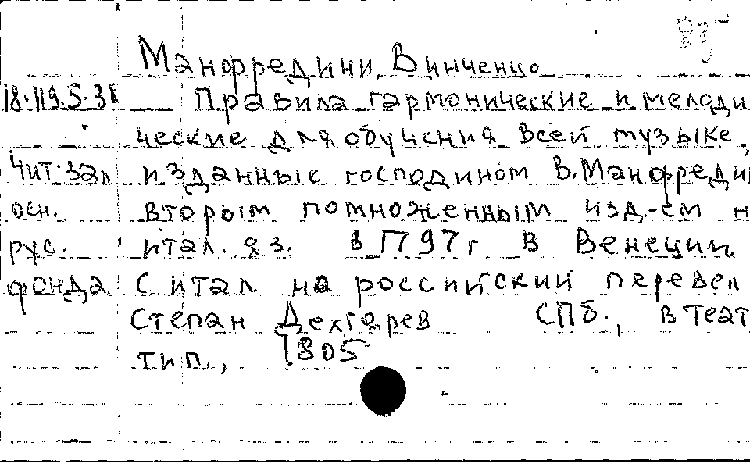 Манфредини, Винченцо
18.119.5.3
Правила гармонические и мелоди
ческие для обучения всей музыке,
Чит. зал изданные господином В. Манфреди
осн. вторым помноженным изд-ем н
рус. итал. яз. в 1797 г в Венеции
фонда С итал на российский перевел
Степан Дехтарев СПб., в Теат
тип., 1805